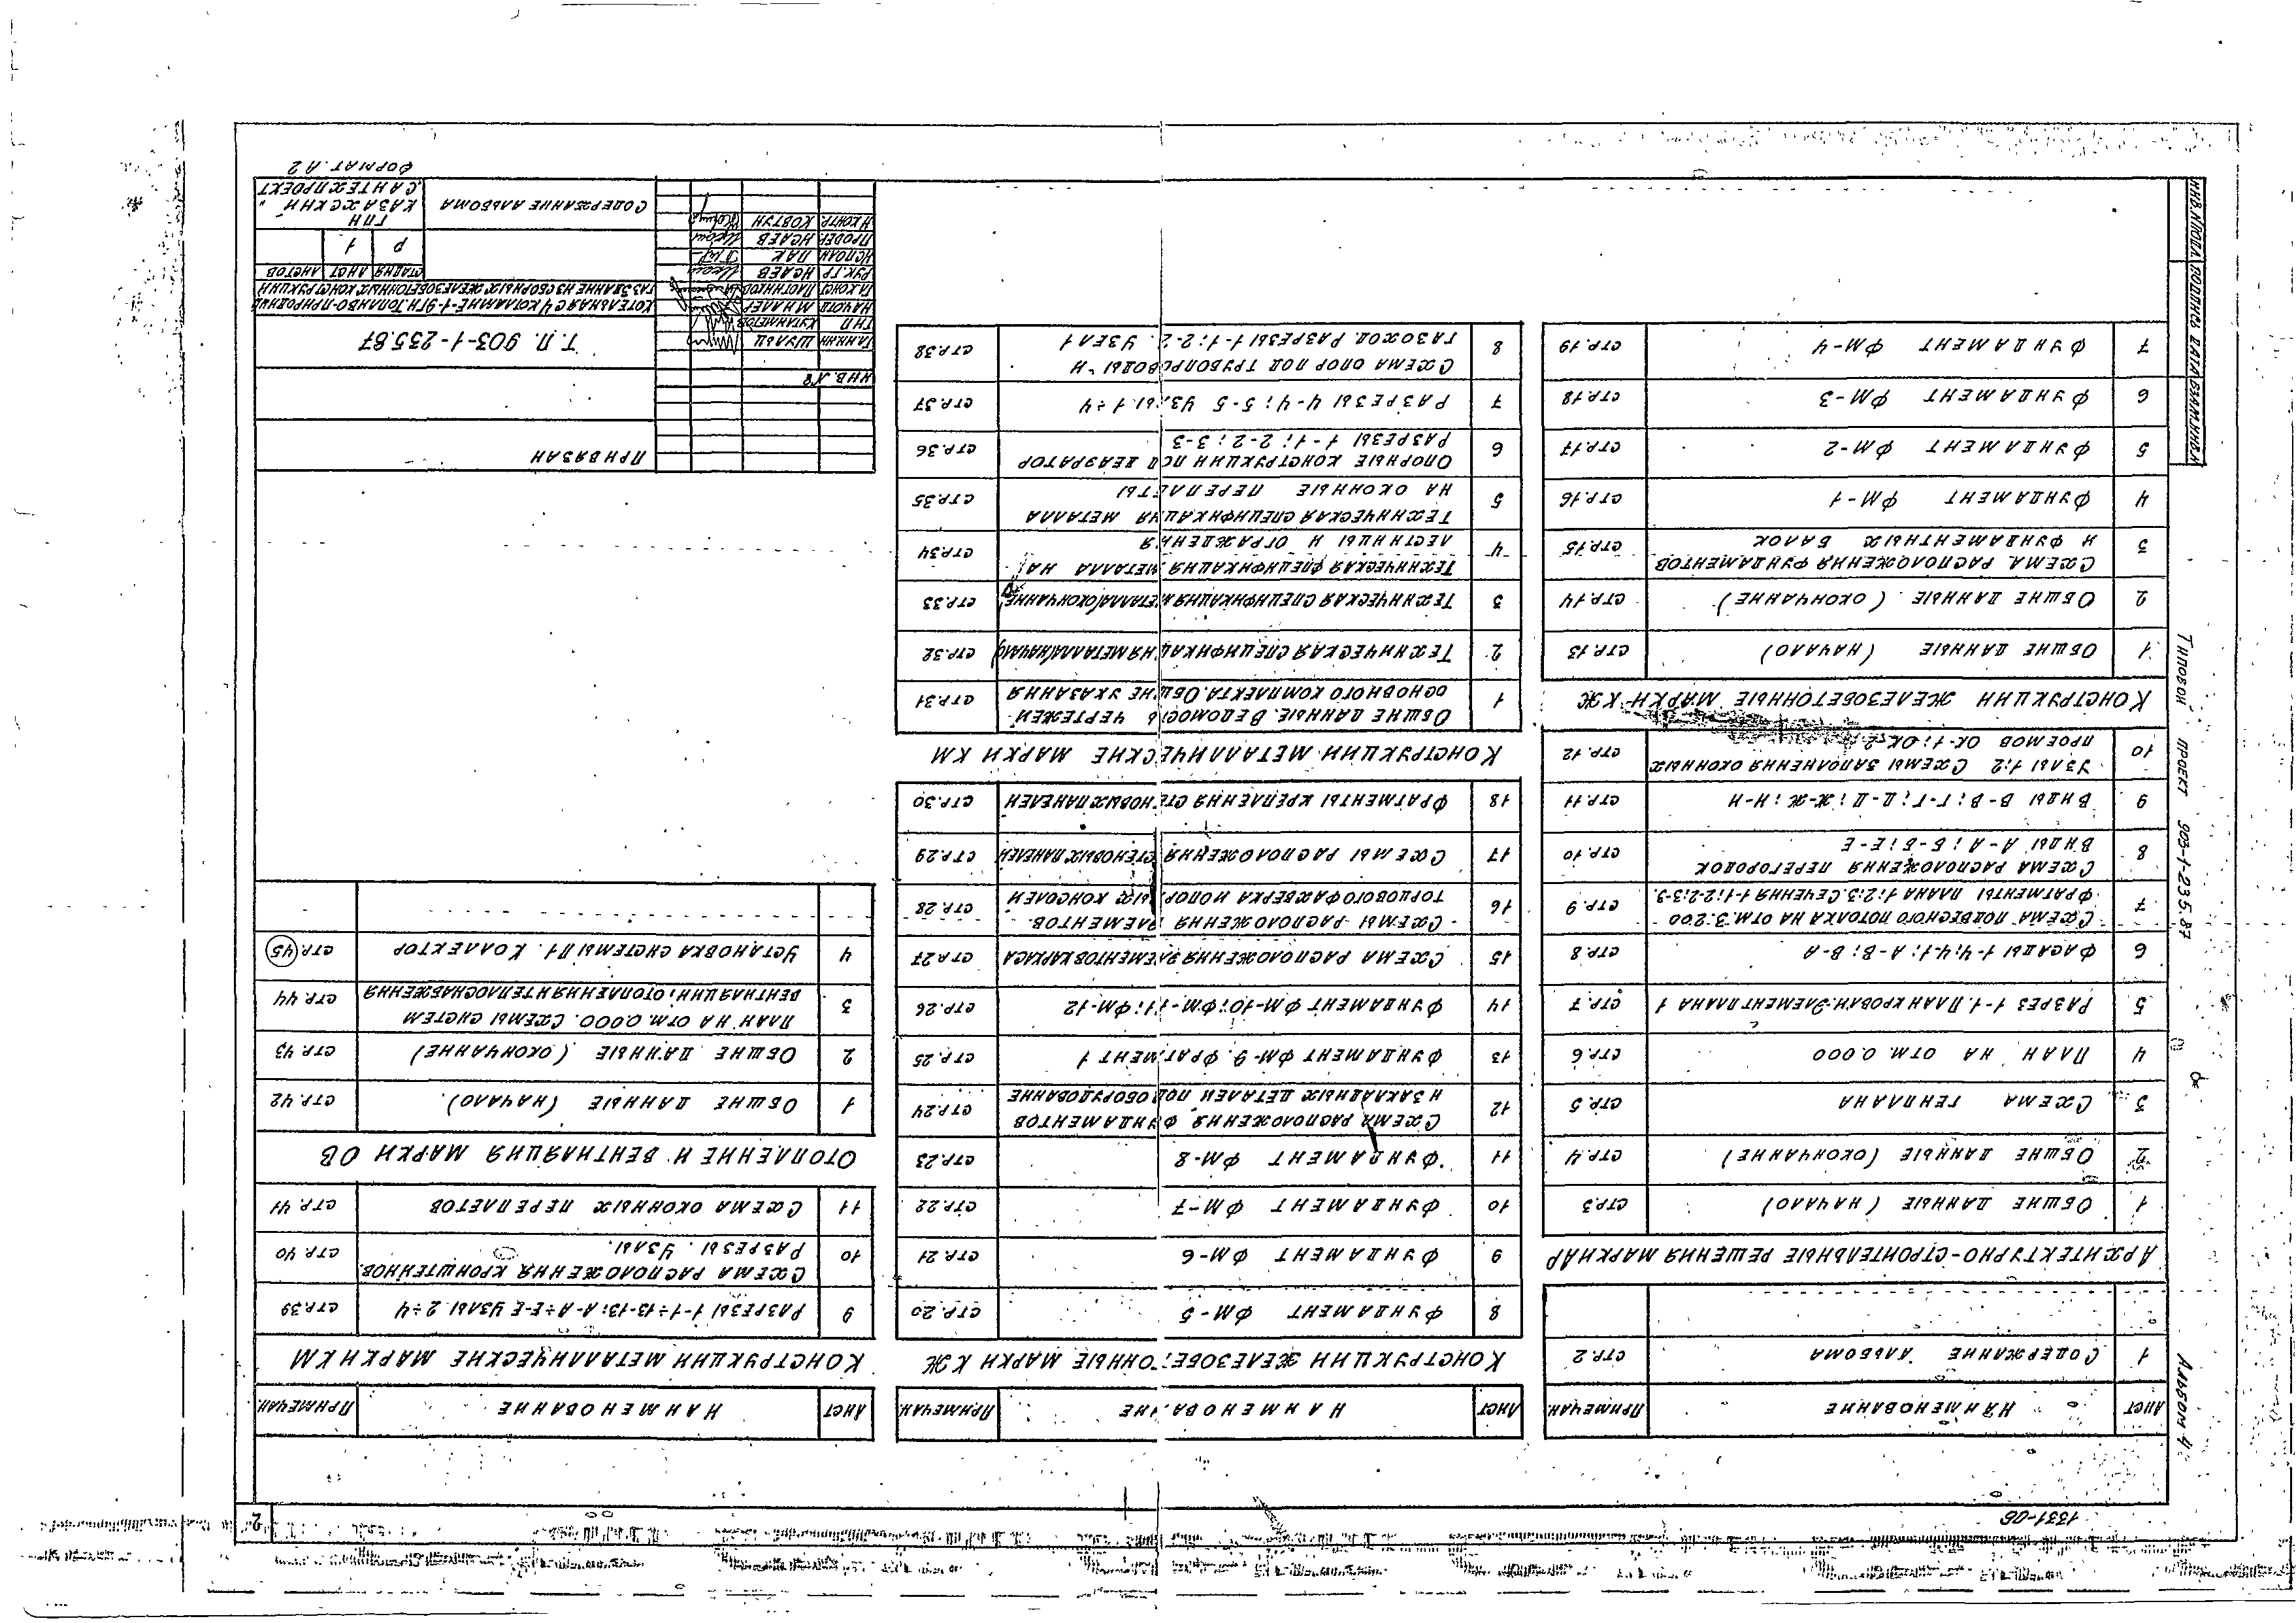 1331-06
2
Альбом 4
Типовой проект 903-1-235.87
Лист Наименование Примечан.
1 Содержание альбома стр.2
Архитектурно-строительные решения марки АР
1 Общие данные (начало) стр.3
2 Общие данные (окончание) стр.4
3 Схема генплана стр.5
4 План на отм. 0.000 стр.6
5 Разрез 1-1. План кровли. Элемент плана 1 стр.7
6 Фасады 1-4; 4-1; А-В; В-А стр.8
7 Схема подвесного потолка на отм. 3.200
Фрагменты плана 1; 2; 3. Сечения 1-1; 2-2; 3-3. стр.9
8 Схема расположения перегородок
Виды А-А; Б-Б; Е-Е стр.10
9 Виды В-В; Г-Г; Д-Д; Ж-Ж; И-И стр.11
10 Узлы 1; 2 Схемы заполнения оконных
проемов ОК-1; ОК-2 стр.12
Конструкции железобетонные марки КЖ
1 Общие данные (начало) стр.13
2 Общие данные (окончание) стр.14
3 Схема расположения фундаментов
и фундаментных балок стр.15
4 Фундамент ФМ-1 стр.16
5 Фундамент ФМ-2 стр.17
6 Фундамент ФМ-3 стр.18
7 Фундамент ФМ-4 стр.19
Лист Наименование Примечан.
Конструкции железобетонные марки КЖ
8 Фундамент ФМ-5 стр.20
9 Фундамент ФМ-6 стр.21
10 Фундамент ФМ-7 стр.22
11 Фундамент ФМ-8 стр.23
12 Схема расположения фундаментов
и закладных деталей под оборудование стр.24
13 Фундамент ФМ-9. Фрагмент 1 стр.25
14 Фундамент ФМ-10; ФМ-11; ФМ-12 стр.26
15 Схема расположения элементов каркаса стр.27
16 Схемы расположения элементов
торцового фахверка и опорных консолей стр.28
17 Схемы расположения стеновых панелей стр.29
18 Фрагменты крепления стеновых панелей стр.30
Конструкции металлические марки КМ
1 Общие данные. Ведомость чертежей
основного комплекта. Общие указания стр.31
2 Техническая спецификация металла (начало) стр.32
3 Техническая спецификация металла (окончание) стр.33
4 Техническая спецификация металла на
лестницы и ограждения стр.34
5 Техническая спецификация металла
на оконные переплеты стр.35
6 Опорные конструкции под деаэратор
Разрезы 1-1; 2-2; 3-3 стр.36
7 Разрезы 4-4; 5-5 Узлы 1÷4 стр.37
8 Схема опор под трубопроводы и
газоход. Разрезы 1-1; 2-2. Узел 1 стр.38
Лист Наименование Примечан.
Конструкции металлические марки КМ
9 Разрезы 1-1÷13-13; А-А÷Е-Е Узлы 2÷4 стр.39
10 Схема расположения кронштейнов.
Разрезы. Узлы. стр.40
11 Схема оконных переплетов стр.41
Отопление и вентиляция марки ОВ
1 Общие данные (начало). стр.42
2 Общие данные (окончание) стр.43
3 План на отм. 0.000. Схемы систем
вентиляции, отопления и теплоснабжения стр.44
4 Установка системы П1. Коллектор стр.45
Привязан
Инв. №
Т.П. 903-1-235.87
Гл.инж Шульц
ГИП Кутанметов
Нач.отд Миллер
Гл.конст Плотников
Рук.гр Исаев
Исполн Пак
Провер Исаев
Н.контр. Ковтун
Котельная с 4 котлами Е-1-9Г Топливо-природный
газ Здание из сборных железобетонных конструкций
Стадия Лист Листов
Р 1
Содержание альбома
ГПИ
Казахский
"Сантехпроект"
Формат А2
Инв.№подл. Подпись дата Взам.инв.№